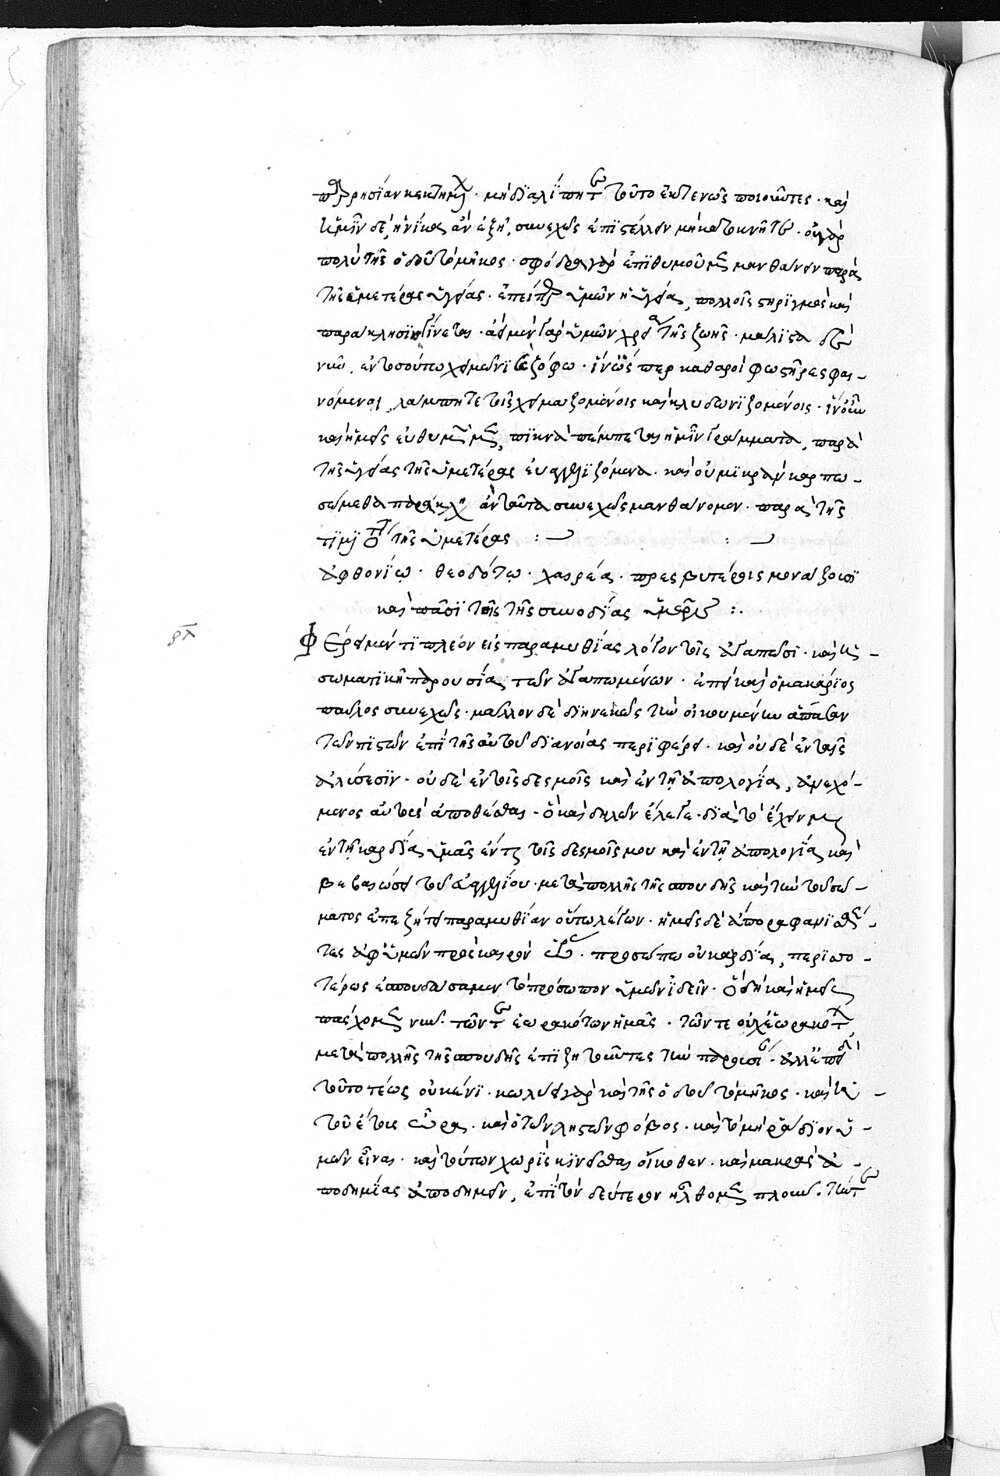 παρρησίαν κεκτημένοι· μὴ διαλίπητε τοῦτο ἐκτενῶς ποιοῦντες· καὶ
ἡμῖν δὲ, ἡνίκα ἂν ἐξῇ, συνεχῶς ἐπιστέλλειν μὴ κατοκνῆτε· οἰ γὰρ
πολὺ τῆς ὁδοῦ τὸ μῆκος· σφόδρα γὰρ ἐπιθυμοῦμεν μανθάνειν παρὰ
τῆς ὑμετέρας ὑγείας· ἐπείπερ ὑμῶν ἡ ὑγεία, πολλοῖς στηριγμὸς καὶ
παράκλησις γίνεται· ἀεὶ μὲν γὰρ ὑμῶν χρεία τῆς ζωῆς· μάλιστα δὲ
νῦν, ἐν τοσούτῳ χειμῶνι καὶ ζόφῳ· ἵν' ὥσπερ καθαροὶ φωστῆρες φαι-
νόμενοι, λάμπητε τοῖς χειμαζομένοις καὶ κλυδωνιζομένοις· ἵν' οὖν
καὶ ἡμεῖς εὐθυμῶμεν, πυκνὰ πέμπετε ἡμῖν γράμματα, παρὰ
τῆς ὑγείας τῆς ὑμετέρας εὐαγγελιζόμενα· καὶ οὐ μικρὰν καρπω-
σόμεθα παράκλησιν ἂν ταῦτα συνεχῶς μανθάνωμεν· παρὰ τῆς
τιμιότητος τῆς ὑμετέρας :
ἀφθονίῳ· θεοδότῳ· χαιρέᾳ· πρεσβυτέροις μονάζουσι
καὶ πᾶσι τοῖς τῆς συνοδίας ὑμετέρας :.
Φέρει μέν τι πλέον εἰς παραμυθίας λόγον τοῖς ἀγαπῶσι· καὶ ἡ
σωματικὴ παρουσία τῶν ἀγαπωμένων· ἐπεὶ καὶ ὁ μακάριος
παῦλος συνεχῶς· μᾶλλον δὲ διηνεκῶς τὴν οἰκουμένην ἅπασαν
τῶν πιστῶν ἐπὶ τῆς αὐτοῦ διανοίας περιφέρει· καὶ οὐδὲ ἐν ταῖς
ἁλύσεσιν· οὐδὲ ἐν τοῖς δεσμοῖς καὶ ἐν τῇ ἀπολογίᾳ, ἀνεχό-
μενος αὐτοὺς ἀποθέσθαι· ὃ καὶ δηλῶν ἔλεγε· διὰ τὸ ἔχειν με
ἐν τῇ καρδίᾳ ὑμᾶς ἔν τε τοῖς δεσμοῖς μου καὶ ἐν τῇ ἀπολογίᾳ καὶ
βεβαιώσει τοῦ εὐαγγελίου· μετὰ πολλῆς τῆς σπουδῆς καὶ τὴν τοῦ σώ-
ματος ἐπεζήτει παραμυθίαν οὕτω λέγων· ἡμεῖς δὲ ἀπορφανισθέν-
τες ἀφ' ὑμῶν πρὸς καιρὸν ὥρας· προσώπῳ οὐ καρδίᾳ, περισσο-
τέρως ἐσπουδάσαμεν τὸ πρόσωπον ὑμῶν ἰδεῖν· ὃ δὴ καὶ ἡμεῖς
πάσχομεν νῦν· τῶν τε ἑωρακότων ἡμᾶς· τῶν τε οὐχ ἑωρακότων
μετὰ πολλῆς τῆς σπουδῆς ἐπιζητοῦντες τὴν παρουσίαν· ἀλλ' ἐπειδὴ
τοῦτο τέως οὐκ ἔνι· κωλύει γὰρ καὶ τῆς ὁδοῦ τὸ μῆκος· καὶ ἡ
τοῦ ἔτους ὥρα· καὶ ὁ τῶν λῃστῶν φόβος· καὶ τὸ μὴ ῥᾴδιον ὑ-
μῶν εἶναι· καὶ τούτων χωρὶς κινεῖσθαι οἴκοθεν· καὶ μακρὰς ἀ-
ποδημίας ἀποδημεῖν, ἐπὶ τὸν δεύτερον ἤλθομεν πλοῦν· τὴν τῶν